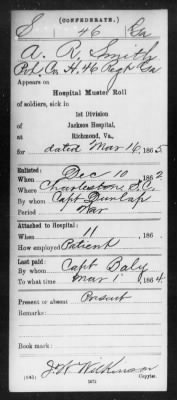 (CONFEDERATE.)
S 46 Ga
A. R. Smith
Pvt. Co. H, 46 Regt Ga
Appears on
Hospital Muster Roll
of soldiers, sick in
1st Division
Jackson Hospital,
Richmond, Va.,
for dated Mar 16, 1865
Enlisted:
When Dec 10, 1862
Where Charleston S.C.
By whom Capt Dunlap
Period War
Attached to Hospital:
When 11, 186 .
How employed Patient
Last paid:
By whom Capt Baly
To what time Mar 1, 1864.
Present or absent Present
Remarks:
Book mark:
J W Wilkinson
(645) Copyist.